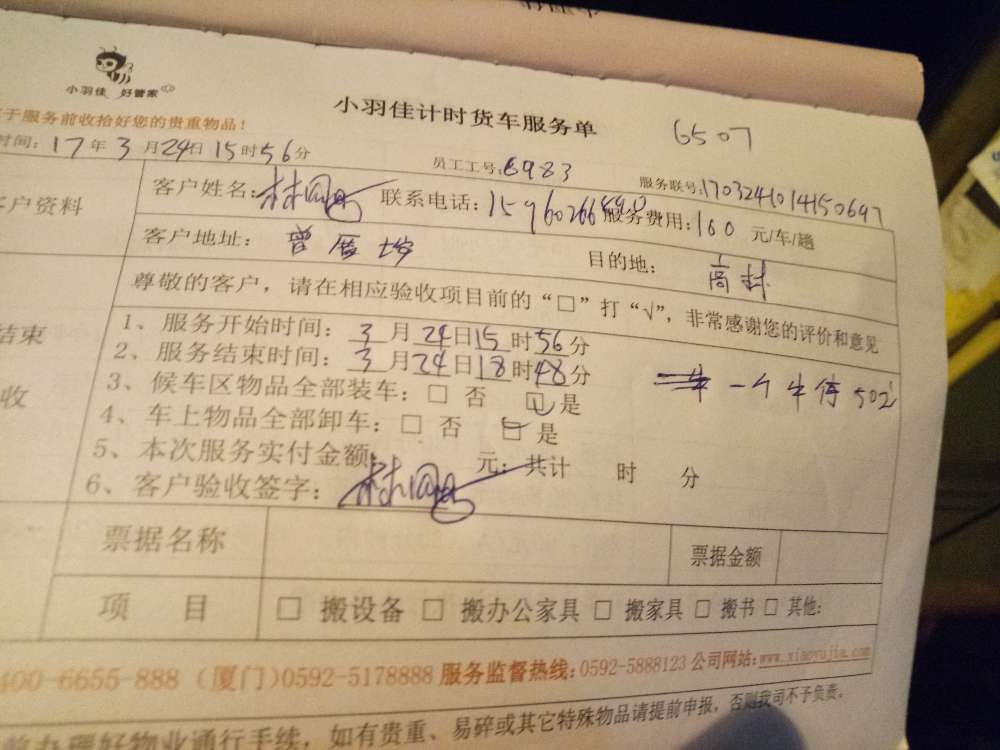 小羽佳 好管家
小羽佳计时货车服务单
6507
于服务前收拾好您的贵重物品!
时间: 17年3月24日15时56分
员工工号: 6983
服务联号: 1703241014150697
客户资料
客户姓名: 林
联系电话: 15960266890
服务费用: 160 元/车/趟
客户地址: 曾厝垵
目的地: 高林
尊敬的客户,请在相应验收项目前的“□”打“√”,非常感谢您的评价和意见
结束
收
1、服务开始时间: 3月24日15时56分
2、服务结束时间: 3月24日18时48分
3、候车区物品全部装车: □ 否 □ 是
一个半停50元
4、车上物品全部卸车: □ 否 □ 是
5、本次服务实付金额: 元; 共计 时 分
6、客户验收签字: 林
票据名称
票据金额
项 目
□ 搬设备 □ 搬办公家具 □ 搬家具 □ 搬书 □ 其他:
400-6655-888 (厦门)0592-5178888 服务监督热线:0592-5888123 公司网站:www.xiaoyujia.com
前办理好物业通行手续, 如有贵重、易碎或其它特殊物品请提前申报, 否则我司不予负责。